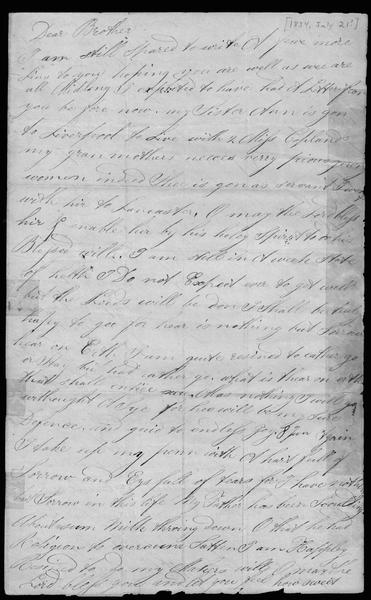 [1834, July 21?]
Dear Brother
I am still spared to write A few more
Lins to you hoping you are well as we are
all Midling I expected to have had A Letter from
you be fore now my Sister Ann is gon
to Liverpool to Live with 2 Miss Coplands
my gran mothers neices verry pious
women indeed She is gon as servant I went
with hir to Lancaster O may the Lord bless
hir & enable her by his holy Spirit to do his
Blessed will. I am still in A week state
of helth I Do not Expect ever to get well
but the Lords will be don I shall be
happy to goe for hear is nothing but Sorrow
hear on Erth I am quite resined to eather go
or stay but had rather go, what is thear on erth
that shall entice me Has nothing I will
without to ye for hee will be my sure
Defence and guid to endless Joy
I take up my penn with A hart full of
Sorrow and Eys full of tears for I have not
but Sorrow in this life my Father has been
About sum Milk throing down O that he had
Religion to overcume Satten I am Happy
Resind to go my Makers will O may the
Lord bless you and let you feel how swet